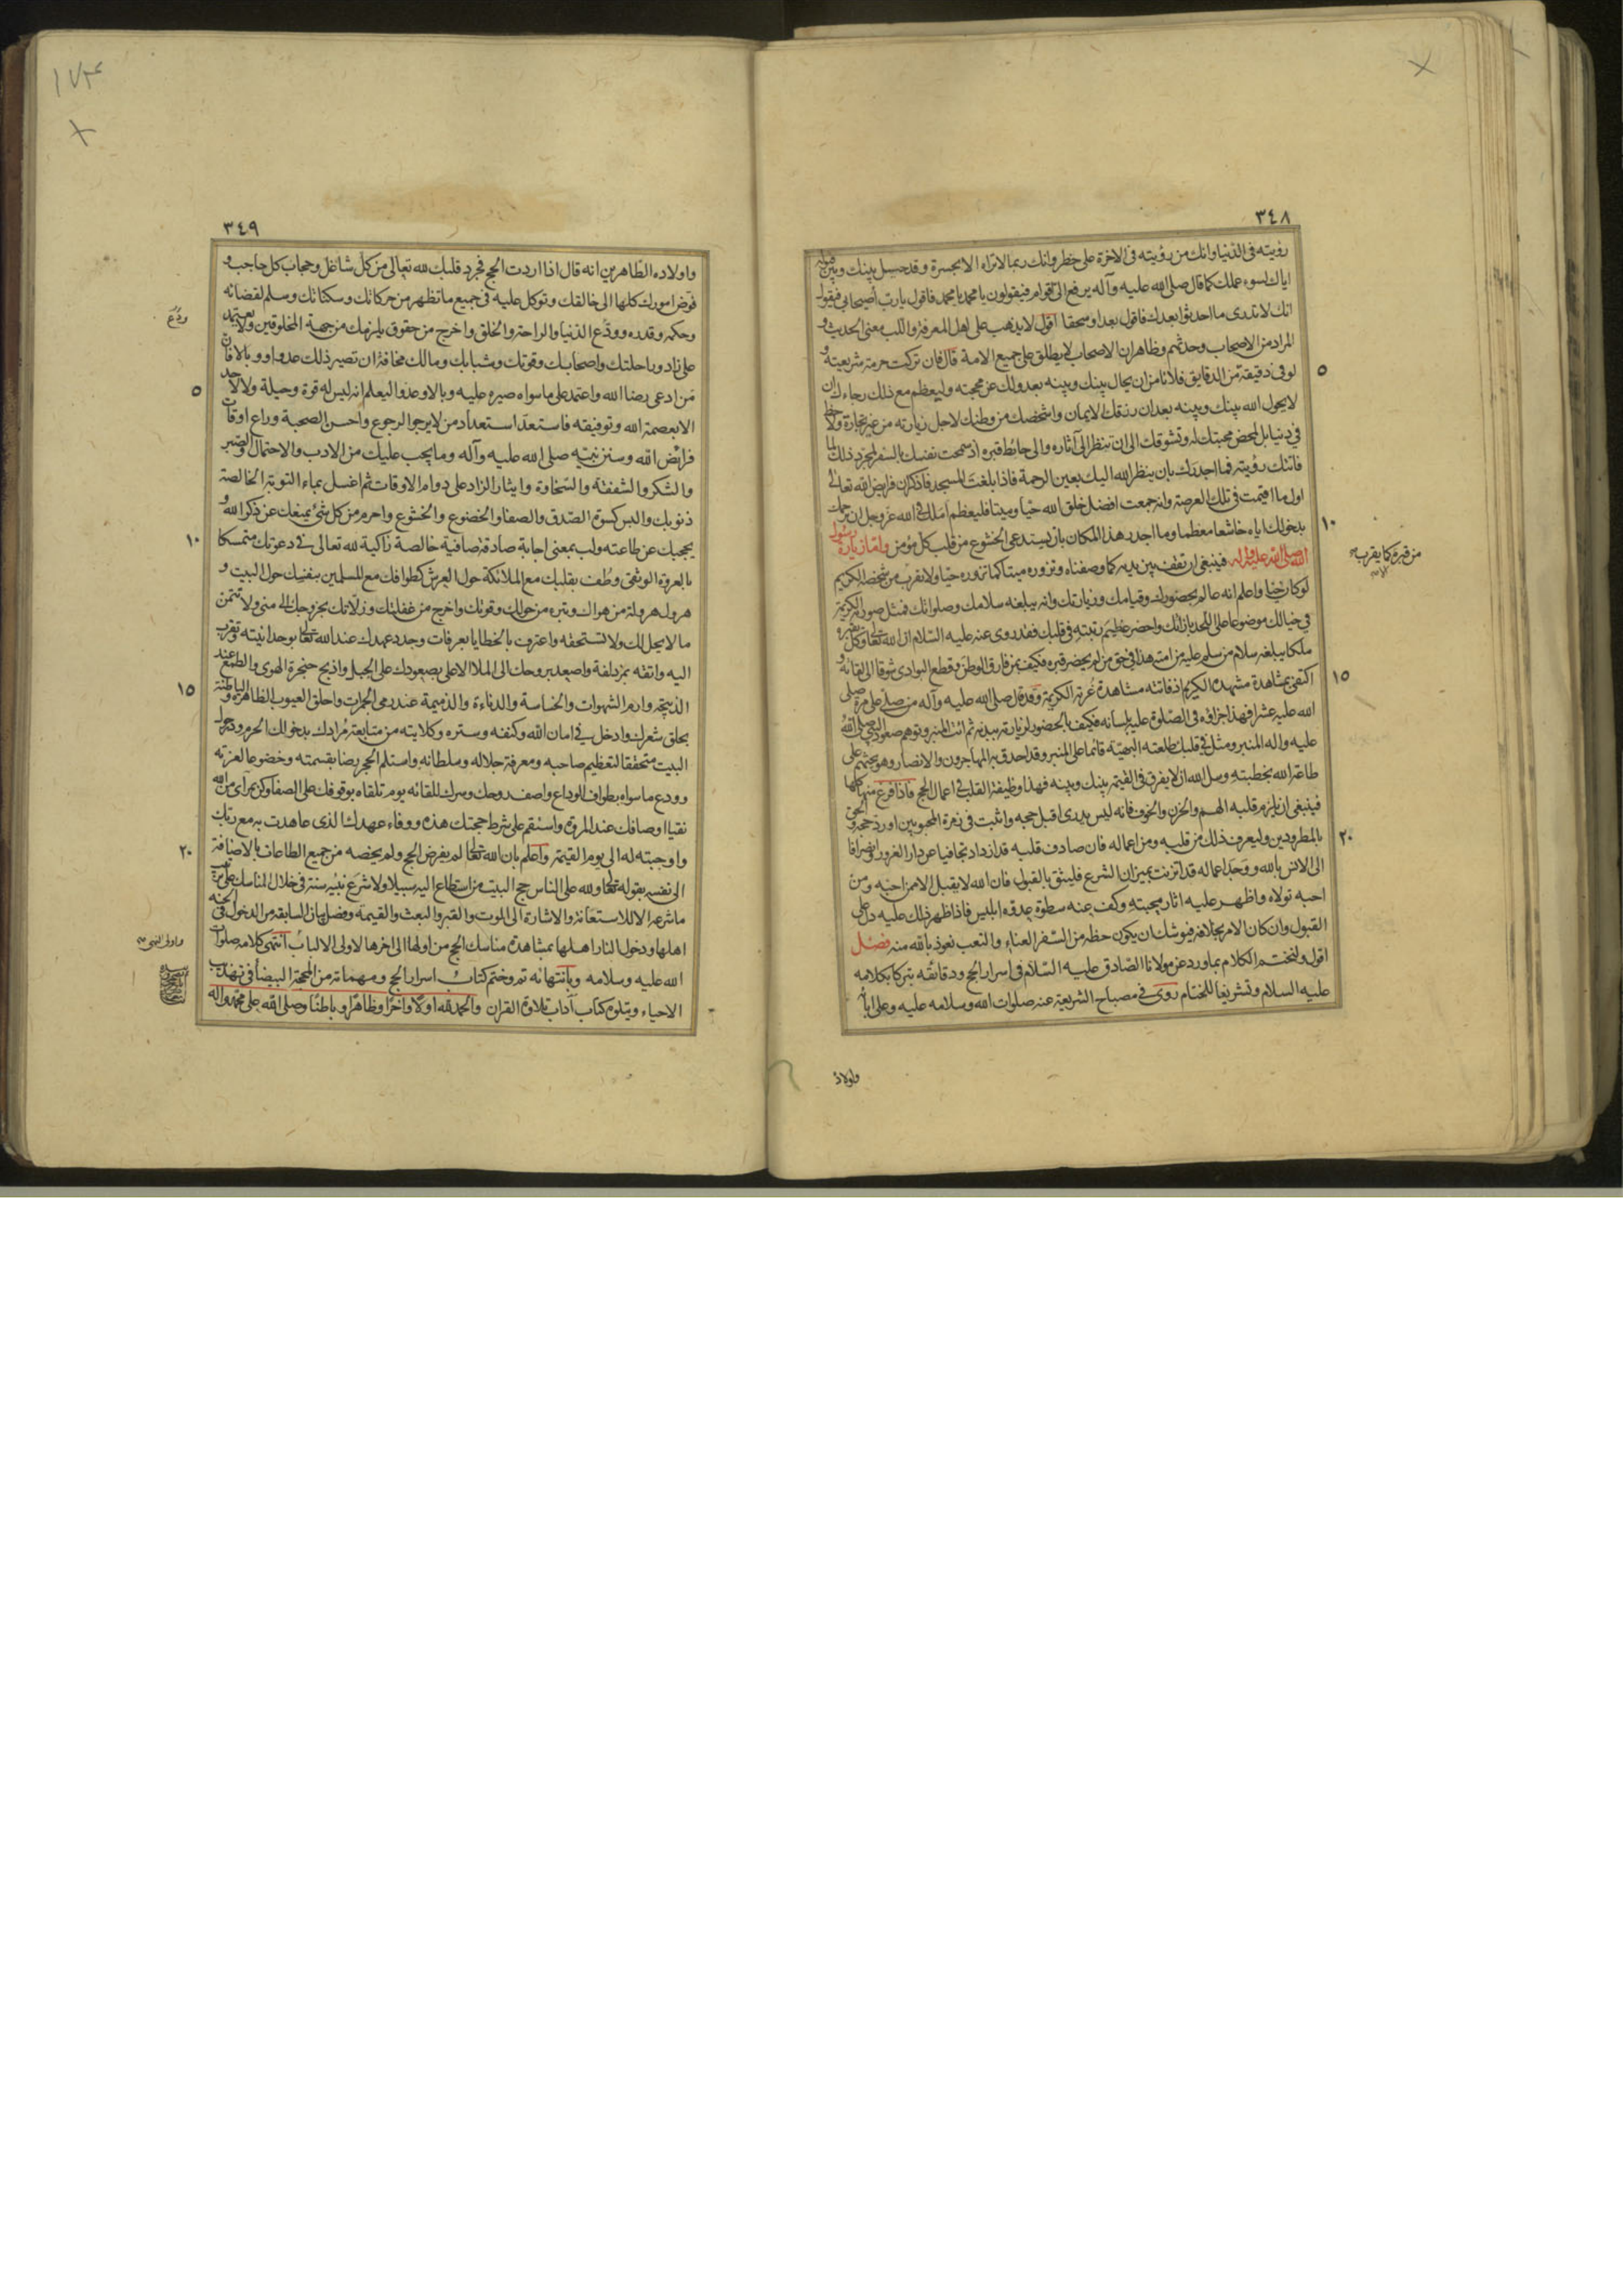 ٣٤٨
رؤيته فى الدنيا وانك من رؤيته فى الاخرة على خطر وانك ربما لا تراه الا بحسرة وقد حيل بينك وبين قبوله
اياك لسوء عملك كما قال صلى الله عليه وآله يرفع الىّ اقوام فيقولون يا محمد يا محمد فاقول يا رب أصيحابى فيقول
انك لا تدرى ما احدثوا بعدك فاقول بعدا وسحقا اقول لا يذهب على اهل المعرفة واللب معنى الحديث و
المراد من الاصحاب وحدثهم وظاهر ان الاصحاب لا يطلق على جميع الامة قال فان تركت حرمة شريعته و
لو فى دقيقة من الدقايق فلا تامن ان يحال بينك وبينه بعدولك عن محجته وليعظم مع ذلك رجاءك ان
٥
لا يحول الله بينك وبينه بعد ان رزقك الايمان واشخصك من وطنك لاجل زيارته من غير تجارة ولا حظ
فى دنيا بل لمحض محبتك له وتشوقك الى ان تنظر الى آثاره والى حائط قبره اذ سمحت نفسك بالسفر لمجرد ذلك لما
فاتتك رؤيته فما اجدرك بان ينظر الله اليك بعين الرحمة فاذا بلغت المسجد فاذكر ان فرايض الله تعالى
اول ما اقيمت فى تلك العرصة وانه جمعت افضل خلق الله حيا وميتا فليعظم املك فى الله عز وجل ان يرحمك
بدخولك اياه خاشعا معظما وما اجدر هذا المكان بان يستدعى الخشوع من قلب كل مؤمن واما زيارة رسول
١٠
الله صلى الله عليه وآله فينبغى ان تقف بين يديه كما وصفناه وتزوره ميتا كما تزوره حيا ولا تقرب من شخصه الكريم
من قبره كما يقرب
لو كان حيا واعلم انه عالم بحضورك وقيامك وزيارتك وانه يبلغه سلامك وصلواتك فمثل صورته الكريمة
فى خيالك موضوعا على اللحد بازائك واحضر عظيم رتبته فى قلبك فقد روى عنه عليه السلام ان الله تعالى وكل بقبره
ملكا يبلغه سلام من سلم عليه من امته هذا فى حق من لم يحضر قبره فكيف بمن فارق الوطن وقطع البوادى شوقا الى لقائه و
اكتفى بمشاهدة مشهده الكريم اذ فاتته مشاهدة غرته الكريمة وقد قال صلى الله عليه وآله من صلى على مرة صلى
١٥
الله عليه عشرا فهذا جزاؤه فى الصلوة عليه بلسانه فكيف بالحضور لزيارته ببدنه ثم ائت المنبر وتوهم صعود النبى صلى الله
عليه واله المنبر ومثل فى قلبك طلعته البهية قائما على المنبر وقد احدق به المهاجرون والانصار وهو يحثهم على
طاعة الله بخطبته وسل الله ان لا يفرق فى القيمة بينك وبينه فهذا وظيفة القلب فى اعمال الحج فاذا فرغ منها كلها
فينبغى ان يلزم قلبه الهم والحزن والخوف فانه ليس يدرى اقبل حجه واثبت فى زمرة المحبوبين او رد حجه والحق
بالمطرودين وليعرف ذلك من قلبه ومن اعماله فان صادف قلبه قد ازداد تجافيا عن دار الغرور وانصرافا
٢٠
الى الانس بالله ووجد اعماله قد اتزنت بميزان الشرع فليثق بالقبول فان الله لا يقبل الا من احبه ومن
احبه تولاه واظهر عليه اثار محبته وكف عنه سطوة عدوه ابليس فاذا ظهر ذلك عليه دل على
القبول وان كان الامر بخلافه فيوشك ان يكون حظه من السفر العناء والتعب نعوذ بالله منه فصل
اقول ولنختم الكلام بما ورد عن مولانا الصادق عليه السلام فى اسرار الحج ودقائقه تبركا بكلامه
عليه السلام وتشريفا للختام روى فى مصباح الشريعة عنه صلوات الله وسلامه عليه وعلى ابائه
واولاده
١٧٤
٣٤٩
واولاده الطاهرين انه قال اذا اردت الحج فجرد قلبك لله تعالى من كل شاغل وحجاب كل حاجب و
فوض امورك كلها الى خالقك وتوكل عليه فى جميع ما تظهر من حركاتك وسكناتك وسلم لقضائه
وحكمه وقدره وودع الدنيا والراحة والخلق واخرج من حقوق يلزمك من جهة المخلوقين ولا تعتمد
ودع
على زادك وراحلتك واصحابك وقوتك وشبابك ومالك مخافة ان تصير ذلك عدوا ووبالا فان
من ادعى رضا الله واعتمد على ما سواه صيره عليه وبالا وعدوا ليعلم انه ليس له قوة وحيلة ولا لاحد
٥
الا بعصمة الله وتوفيقه فاستعد استعداد من لا يرجو الرجوع واحسن الصحبة وراع اوقات
فرائض الله وسنن نبيه صلى الله عليه وآله وما يجب عليك من الادب والاحتمال والصبر
والشكر والشفقة والسخاوة وايثار الزاد على دوام الاوقات ثم اغسل بماء التوبة الخالصة
ذنوبك والبس كسوة الصدق والصفا والخضوع والخشوع واحرم من كل شئ يمنعك عن ذكر الله و
يحجبك عن طاعته ولب بمعنى اجابة صادقة صافية خالصة زاكية لله تعالى فى دعوتك متمسكا
١٠
بالعروة الوثقى وطف بقلبك مع الملائكة حول العرش كطوافك مع المسلمين بنفسك حول البيت و
هرول هرولة من هواك وتبره من حولك وقوتك واخرج من غفلتك وزلاتك بخروجك الى منى ولا تتمن
ما لا يحل لك ولا تستحقه واعترف بالخطايا بعرفات وجدد عهدك عند الله تعالى بوحدانيته وتقرب
اليه واتقه بمزدلفة واصعد بروحك الى الملا الاعلى بصعودك على الجبل واذبح حنجرة الهوى والطمع عند
الذبيحة وارم الشهوات والخساسة والدناءة والذميمة عند رمى الجمرات واحلق العيوب الظاهرة والباطنة
١٥
بحلق شعرك وادخل فى امان الله وكنفه وستره وكلايته من متابعة مرادك بدخولك الحرم ودخول
البيت متحققا لتعظيم صاحبه ومعرفة جلاله وسلطانه واستلم الحجر رضا بقسمته وخضوعا لعزته
وودع ما سواه بطواف الوداع واصف روحك وسرك للقائه يوم تلقاه بوقوفك على الصفا وكن بمرآى من الله
نقيا اوصافك عند المروة واستقم على شرط حجتك هذه ووفاء عهدك الذى عاهدت به مع ربك
واوجبته له الى يوم القيمة واعلم بان الله تعالى لم يفرض الحج ولم يخصه من جميع الطاعات بالاضافة
٢٠
الى نفسه بقوله تعالى ولله على الناس حج البيت من استطاع اليه سبيلا ولا شرع نبيه سنة فى خلال المناسك على ترتيب
ما شرعه الا للاستعانة والاشارة الى الموت والقبر والبعث والقيمة وفضل بيان السابقة من الدخول فى الجنة
اهلها ودخول النار اهلها بمشاهدة مناسك الحج من اولها الى اخرها لاولى الالباب انتهى كلامه صلوات
الله عليه وسلامه وبانتهائه تم وختم كتاب اسرار الحج ومهماته من المحجة البيضاء فى تهذيب
الاحياء ويتلوه كتاب آداب تلاوة القران والحمد لله اولا واخرا وظاهرا وباطنا وصلى الله على محمد واله